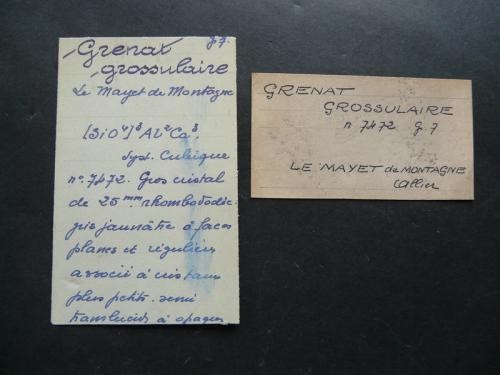 g.7.
Grenat
grossulaire
Le Mayet de Montagne
[SiO⁴]³ Al² Ca³
Syst. Cubique
n° 7472. Gros cristal
de 25 mm rhombododéc.
gris jaunâtre à faces
planes et régulières
associé à cristaux
plus petits. semi
translucides à opaques
GRENAT
GROSSULAIRE
n 7472 G.7
LE MAYET de MONTAGNE
Allier